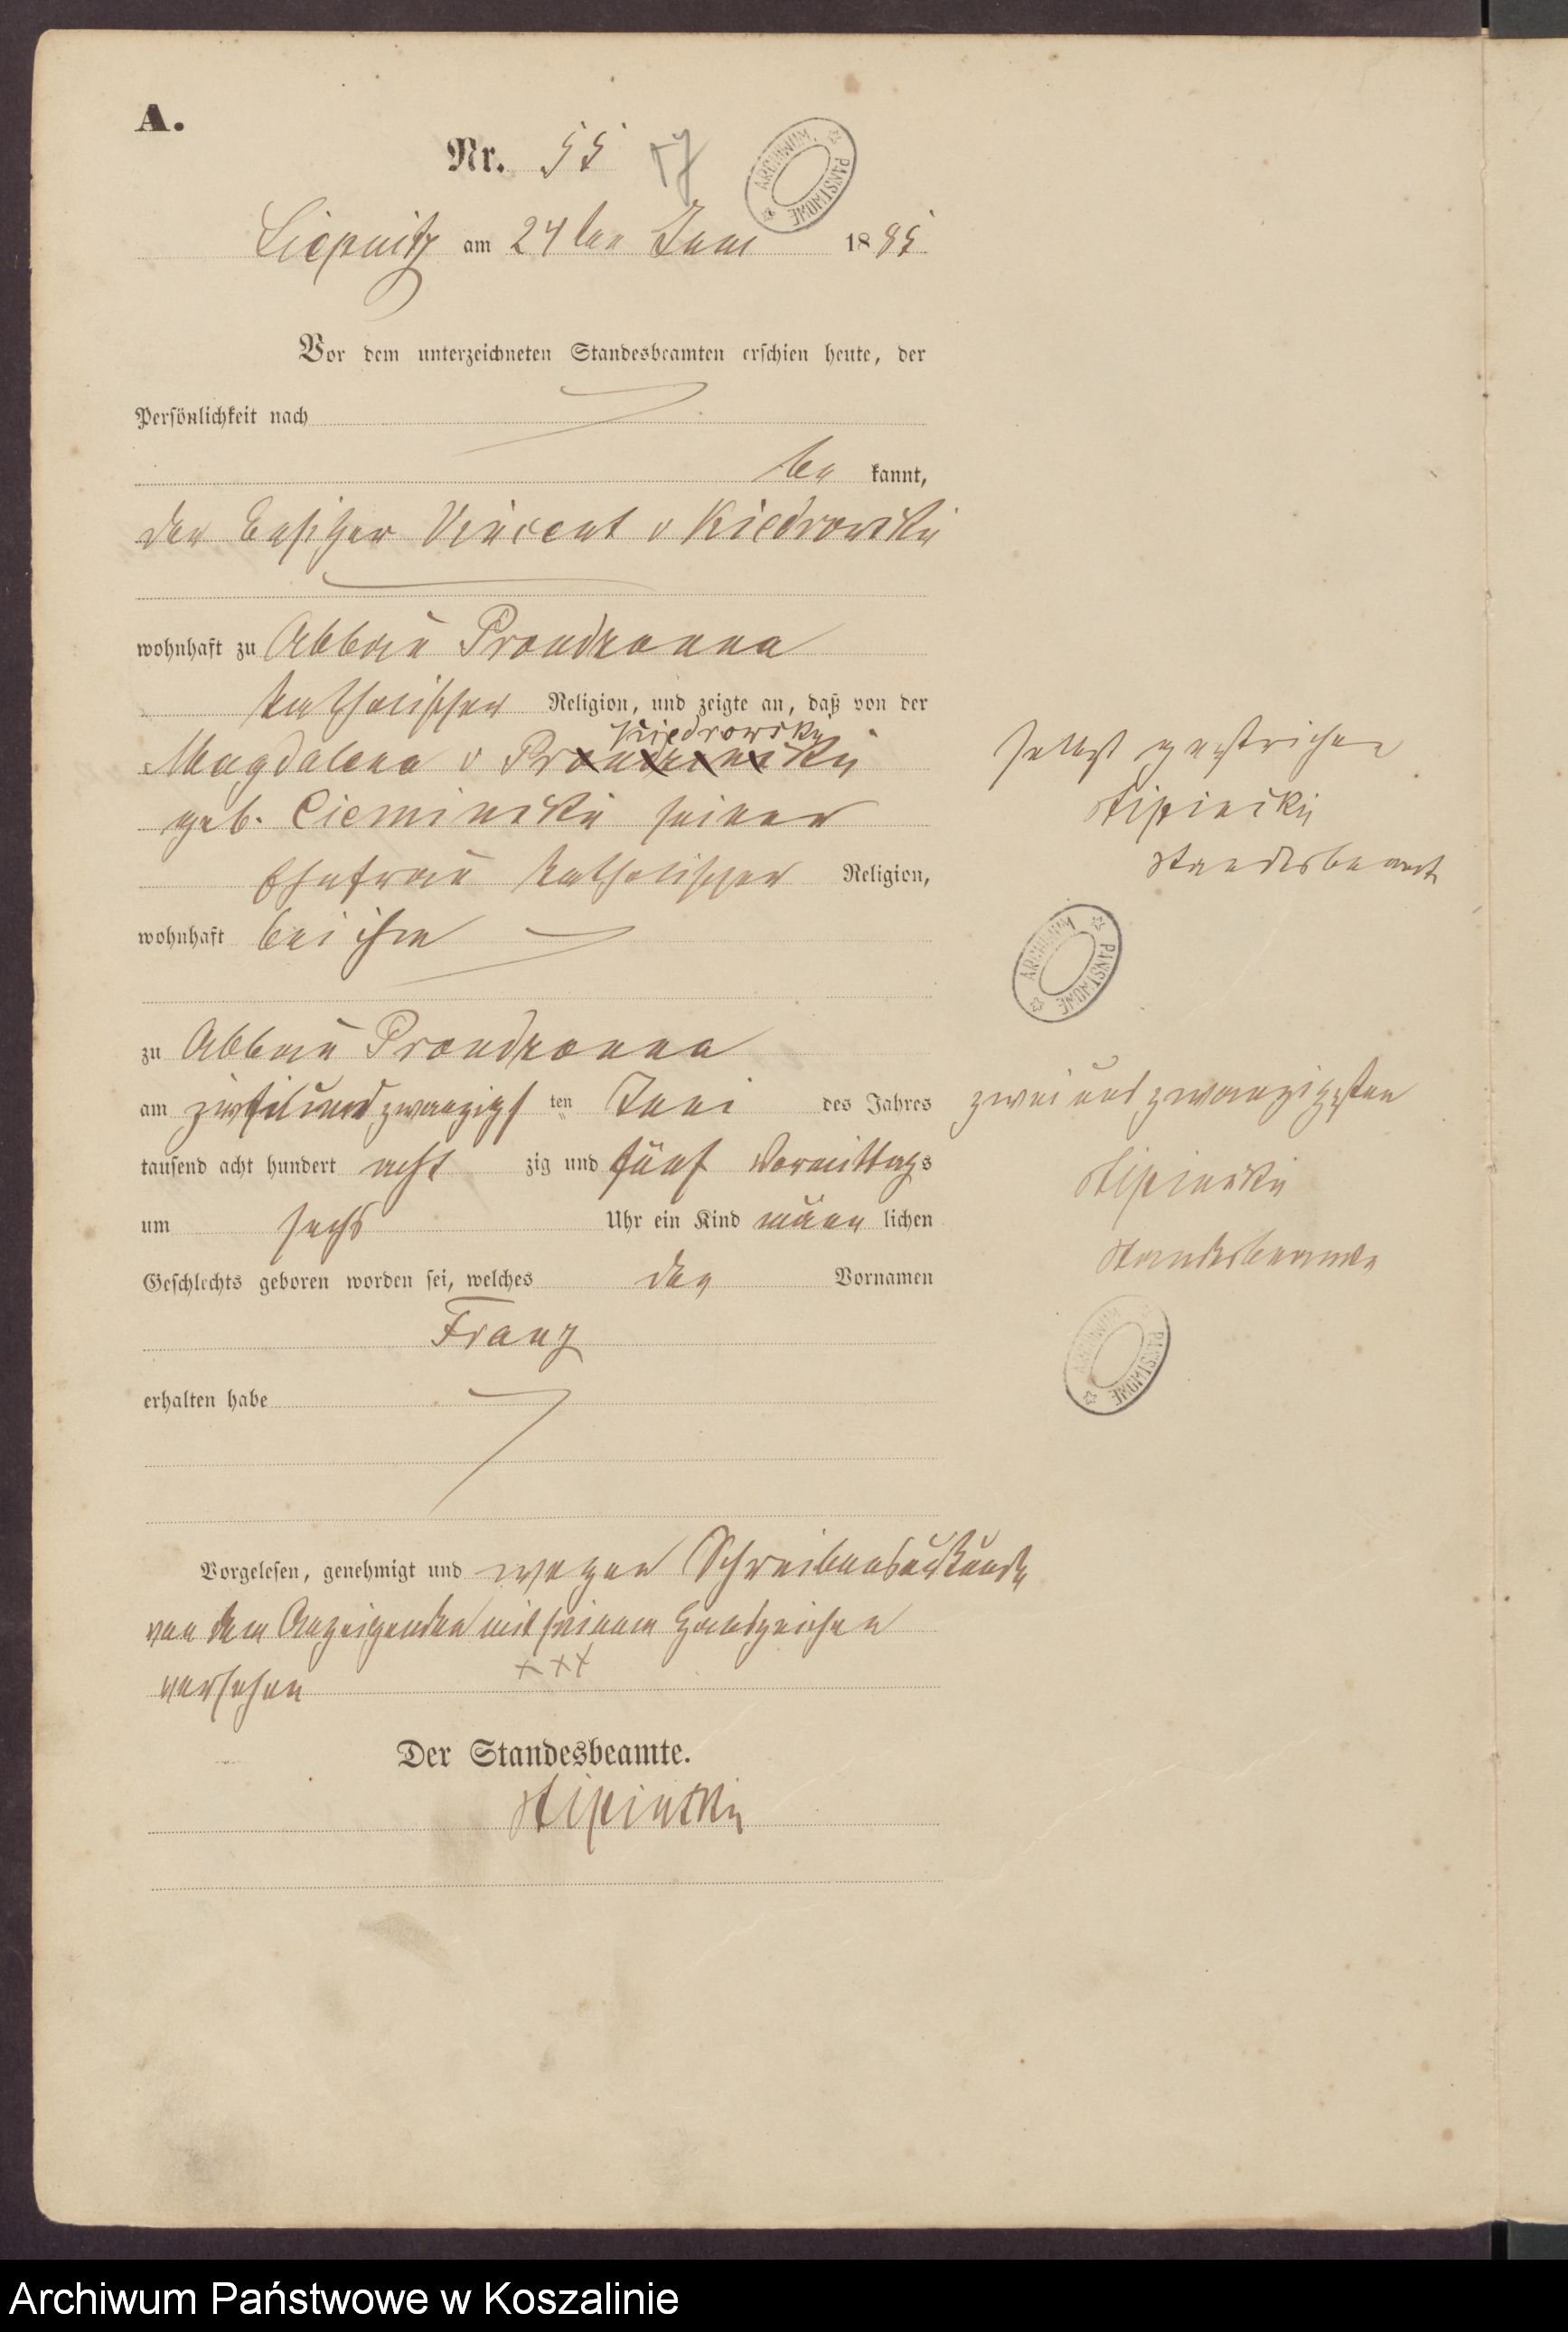 A.
Nr. 55 57
ARCHIWUM PAŃSTWOWE
Liepnitz am 24ten Juni 1885
Vor dem unterzeichneten Standesbeamten erschien heute, der
Persönlichkeit nach
be kannt,
der Besitzer Vincent v Kiedrowski
wohnhaft zu Abbau Prondzonna
katholischer Religion, und zeigte an, daß von der
Kiedrowsky
Magdalena v Prondzinski
geb. Cieminski seiner
Ehefrau katholischer Religion,
wohnhaft bei ihm
zu Abbau Prondzonna
am zwei und zwanzigs ten Juni des Jahres
tausend acht hundert acht zig und fünf Vormittags
um sechs Uhr ein Kind männ lichen
Geschlechts geboren worden sei, welches den Vornamen
Franz
erhalten habe
Vorgelesen, genehmigt und wegen Schreibensunkunde
von dem Anzeigenden mit seinem Handzeichen
versehen +++
Der Standesbeamte.
Stipinski
selbst gestrichen
Stipinski
Standesbeamte
ARCHIWUM PAŃSTWOWE
zwei und zwanzigsten
Stipinski
Standesbeamte
ARCHIWUM PAŃSTWOWE
Archiwum Państwowe w Koszalinie